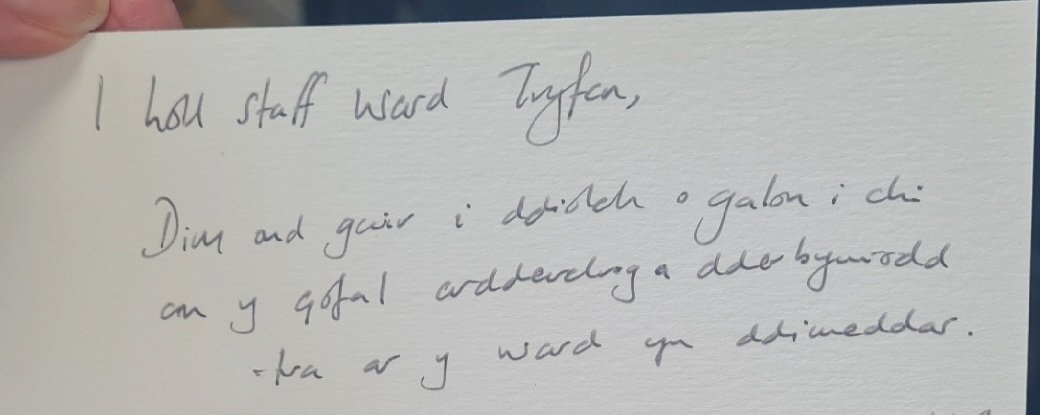 I holl staff ward Tryfan,
Dim ond gair i ddiolch o galon i chi
am y gofal ardderchog a dderbyniodd
tra ar y ward yn ddiweddar.